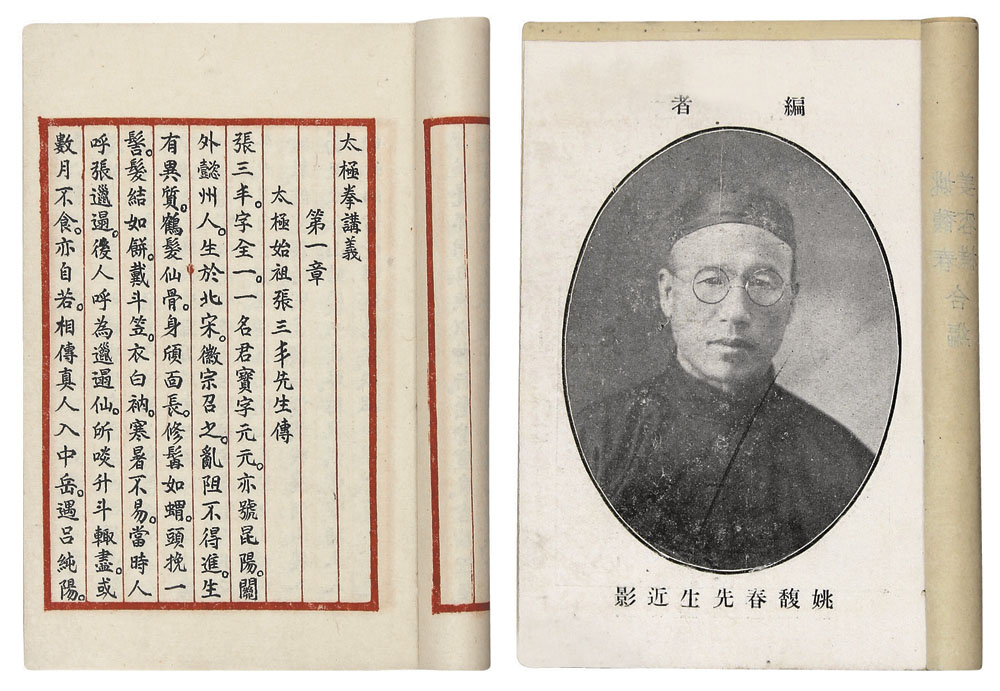 太極拳講義
第一章
太極始祖張三丰先生傳
張三丰。字全一。一名君寶字元元。亦號昆陽。關
外懿州人。生於北宋。徽宗召之。亂阻不得進。生
有異質。鶴髮仙骨。身頎面長。修髯如蝟。頭挽一
髻。髮結如餅。戴斗笠。衣白衲。寒暑不易。當時人
呼張邋遢。後人呼為邋遢仙。所啖升斗輒盡。或
數月不食。亦自若。相傳真人入中岳。遇呂純陽。
編者
姚馥春先生近影